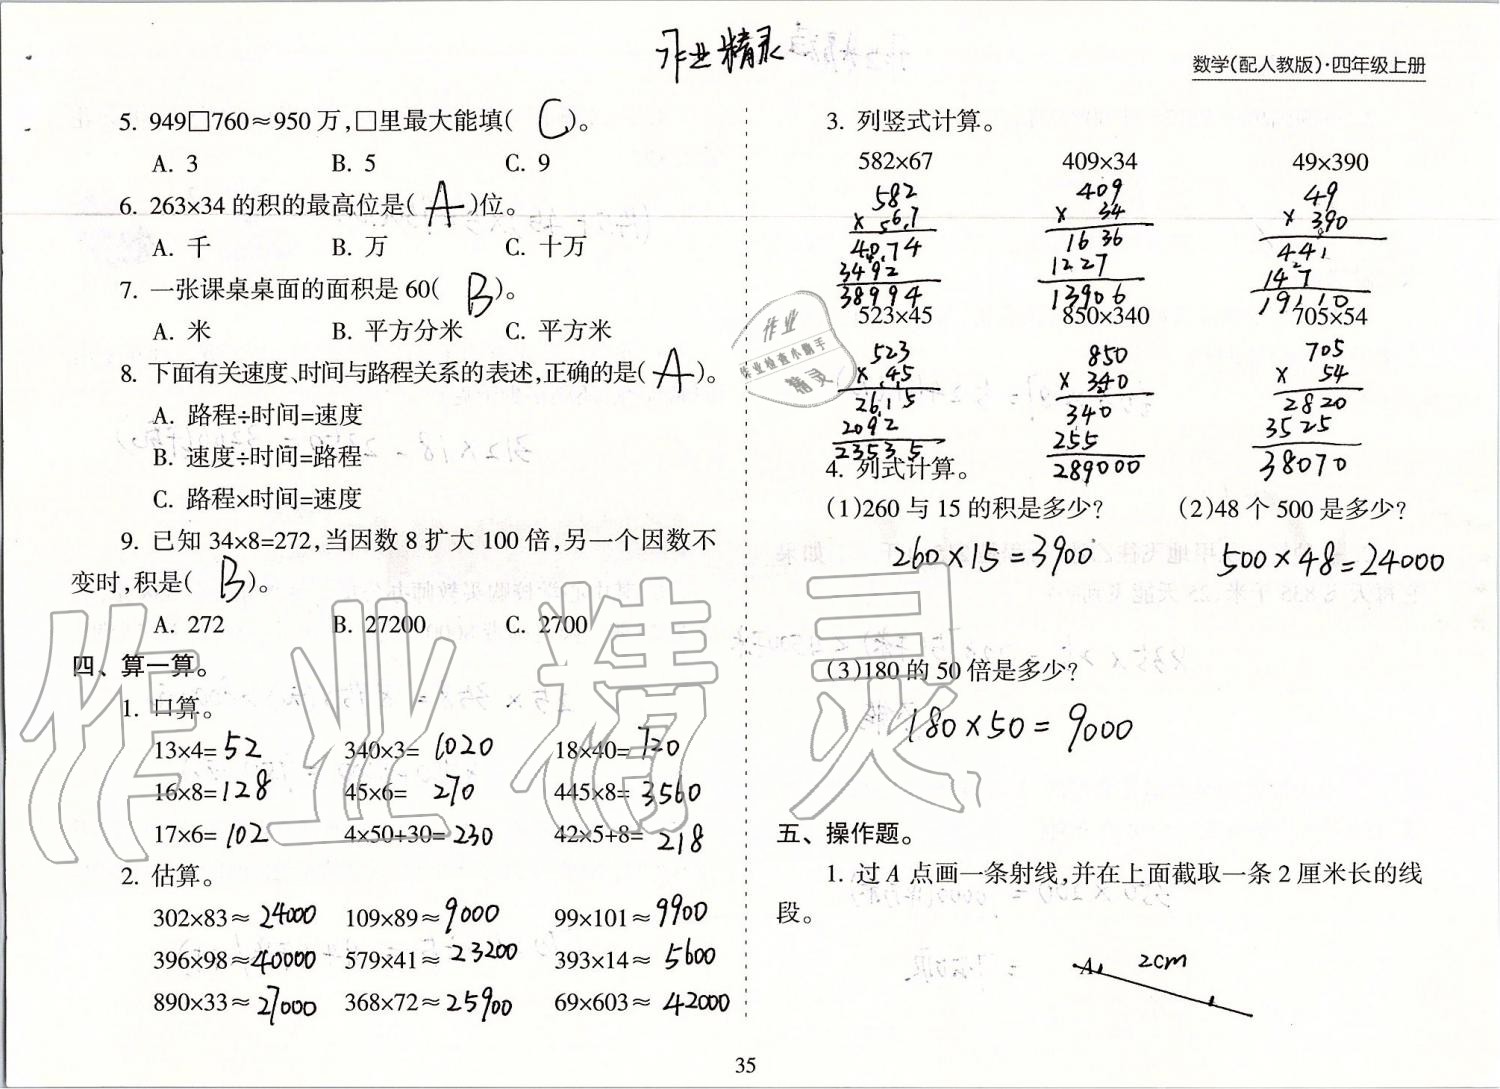 作业精灵
数学(配人教版)·四年级上册
5. 949□760≈950万,□里最大能填( C )。
A. 3 B. 5 C. 9
6. 263×34的积的最高位是( A )位。
A. 千 B. 万 C. 十万
7. 一张课桌桌面的面积是60( B )。
A. 米 B. 平方分米 C. 平方米
8. 下面有关速度、时间与路程关系的表述,正确的是( A )。
A. 路程÷时间=速度
B. 速度÷时间=路程
C. 路程×时间=速度
9. 已知34×8=272,当因数8扩大100倍,另一个因数不
变时,积是( B )。
A. 272 B. 27200 C. 2700
四、算一算。
1. 口算。
13×4=52 340×3=1020 18×40=720
16×8=128 45×6=270 445×8=3560
17×6=102 4×50+30=230 42×5+8=218
2. 估算。
302×83≈24000 109×89≈9000 99×101≈9900
396×98≈40000 579×41≈23200 393×14≈5600
890×33≈27000 368×72≈25900 69×603≈42000
3. 列竖式计算。
582×67 409×34 49×390
582 409 49
× 34 × 390
4074 1636 441
3492 1227 147
38994 13906 19110
523×45 850×340 705×54
523 850 705
× 45 × 340 × 54
2615 340 2820
2092 255 3525
23535 289000 38070
4. 列式计算。
(1)260与15的积是多少? (2)48个500是多少?
260×15=3900 500×48=24000
(3)180的50倍是多少?
180×50=9000
五、操作题。
1. 过A点画一条射线,并在上面截取一条2厘米长的线
段。
A 2cm
35
作业
作业检查小助手
精灵
作业精灵